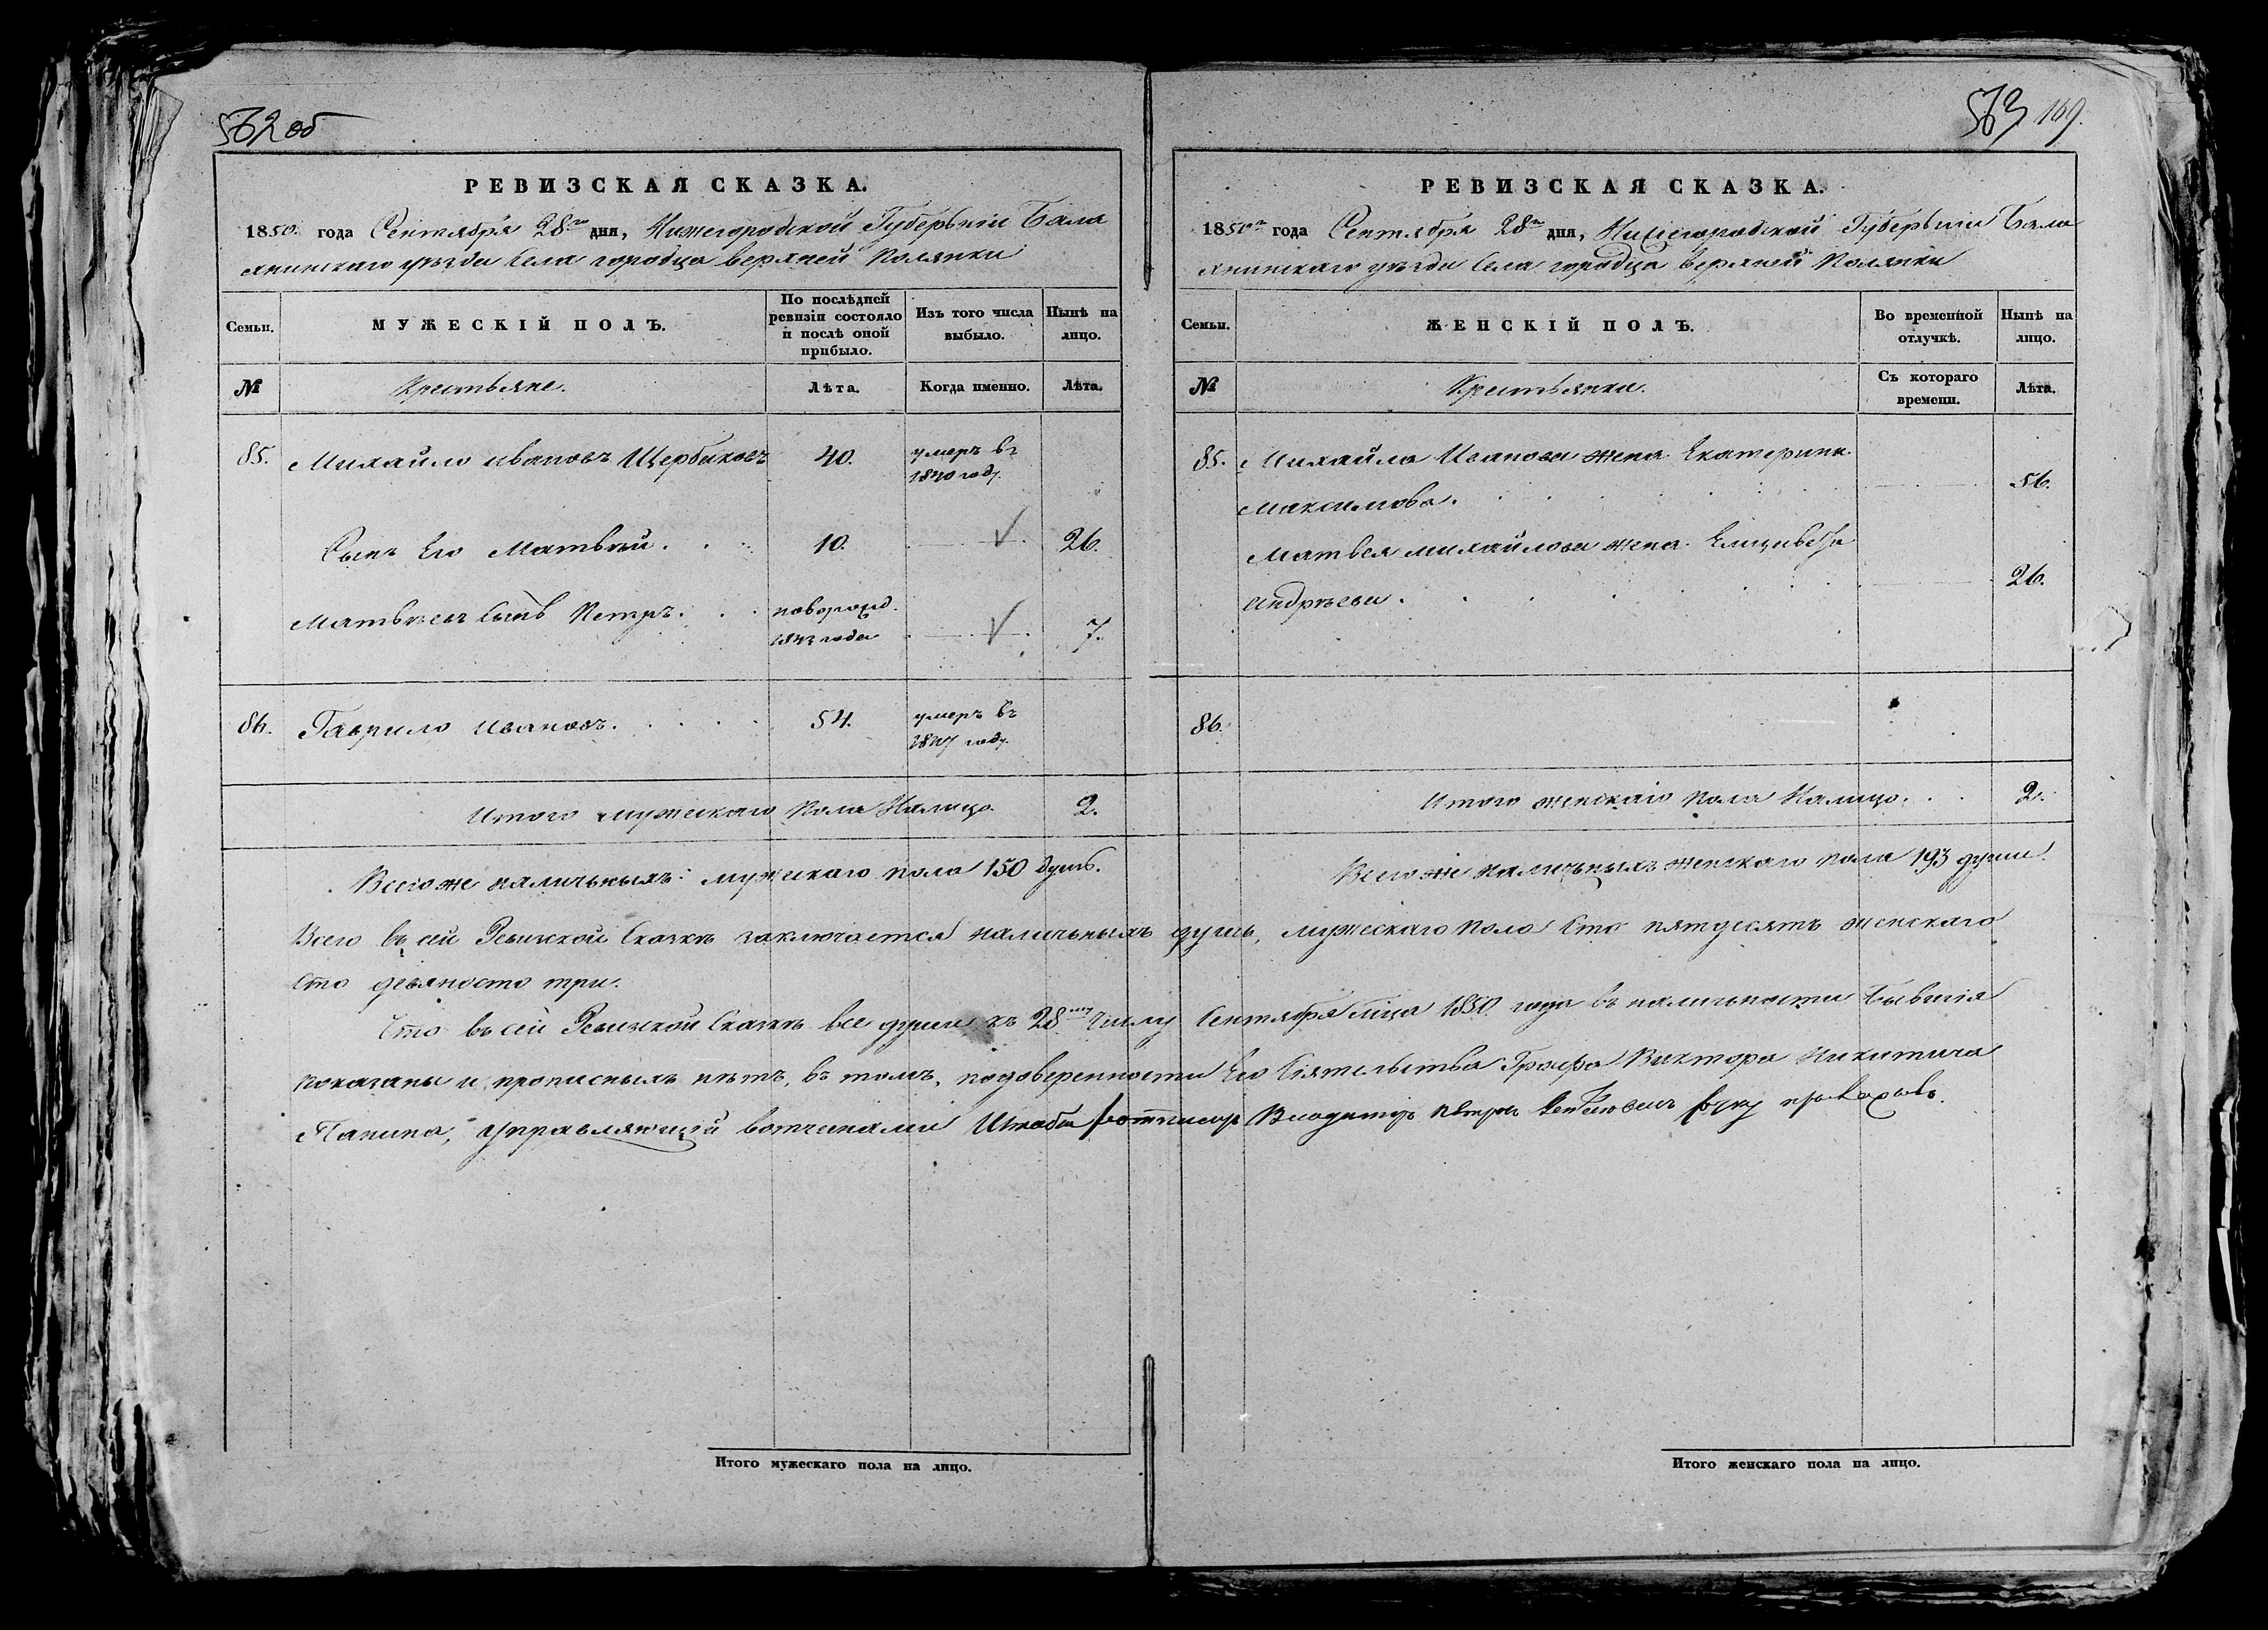 562 об
РЕВИЗСКАЯ СКАЗКА.
1850. года Сентября 28го дня, Нижегородской Губерьнии Бала
хнинскаго уѣзда Села городца верхней Полянки
Семьи.
МУЖЕСКІЙ ПОЛЪ.
По послѣдней ревизіи состояло и послѣ оной прибыло.
Изъ того числа выбыло.
Нынѣ на лицо.
№
Крестьяне.
Лѣта.
Когда именно.
Лѣта.
85. Михайло Ивановъ Щербаковъ 40. умеръ въ
1840 году.
Сынъ Его Матвѣй. 10. 26.
Матвѣевъ Сынъ Петръ. новорожд.
1843 года 7.
86. Гаврило Ивановъ. 54. умеръ въ
году.
Итого мужескаго Пола Налицо. 2.
Всего же наличьныхъ мужескаго пола 150 душъ.
Итого мужескаго пола на лицо.
563 169.
РЕВИЗСКАЯ СКАЗКА.
1850го года Сентября 28го дня, Нижегородской Губерьнии Бала
хнинскаго уѣзда Села городца верхней Полянки
Семьи.
ЖЕНСКІЙ ПОЛЪ.
Во временной отлучкѣ.
Нынѣ на лицо.
№
Крестьянки.
Съ котораго времени.
Лѣта.
85. Михайла Иванова жена Екатерина
Максимова. 56.
Матвея Михайлова жена Елизавета
Андрѣева. 26.
86.
Итого женскаго пола Налицо. 2.
Всего же наличьныхъ женскаго пола 193 души.
Всего въ сей Ревизской Сказкѣ заключается наличьныхъ душъ, мужескаго пола Сто пятдесятъ женскаго
Сто девяносто три.
Что въ сей Ревизской Сказкѣ все души къ 28му числу Сентября м͠ца 1850 года въ наличьности бывшія
показаны и прописныхъ нѣтъ, въ томъ, по доверенности Его Сіятельства Графа Виктора Никитича
Панина, управляющій вотчинами Штабсъ ротмистръ Владимиръ Петровъ руку приложилъ.
Итого женскаго пола на лицо.